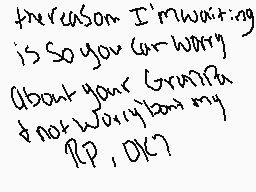 the reason I'm waiting
is so you can worry
about your Grandpa
& not worry 'bout my
RP, OK?